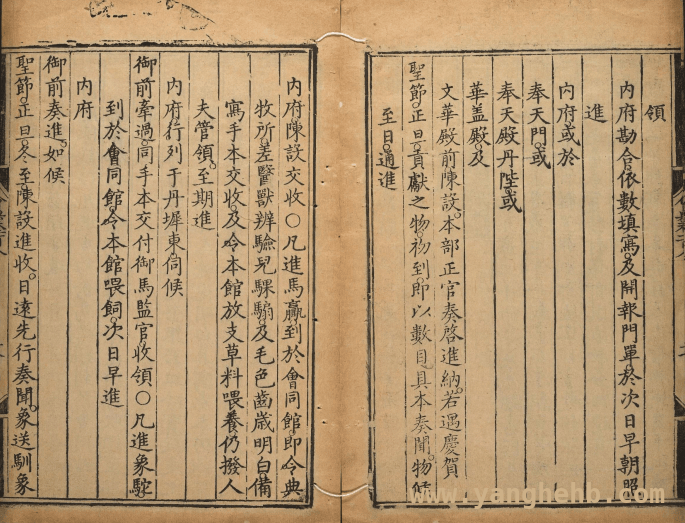 領
内府勘合依數填寫及開報門單於次日早朝照
進
内府或於
奉天門或
奉天殿丹陛或
華盖殿及
文華殿前陳設本部正官奏啓進納若遇慶賀
聖節正旦貢獻之物初到即以數目具本奏聞物候
至日通進
内府陳設交收○凡進馬驘到於會同館即令典
牧所差醫獸辨驗兒騍騸及毛色齒歲明白備
寫手本交收及令本館放支草料喂養仍撥人
夫管領至期進
内府行列于丹墀東伺候
御前牽過同手本交付御馬監官收領○凡進象駝
到於會同館令本館喂飼次日早進
内府
御前奏進如候
聖節正旦冬至陳設進收日遠先行奏聞象送馴象
www.yanghehb.com